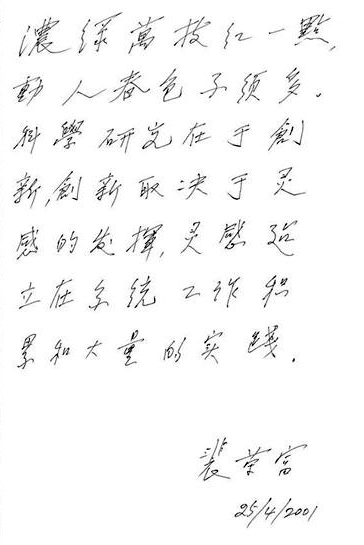 濃绿萬枝红一點,
動人春色不须多。
科學研究在于創
新,創新取决于灵
感的发揮,灵感建
立在系统工作积
累和大量的实践。
裴荣富
25/4/2001